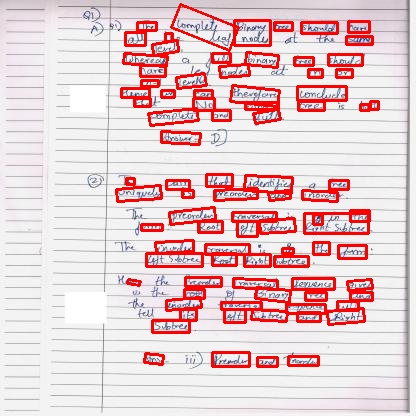 Q1)
A) Q1) The Complete binary tree should have
all leaf nodes at the same
level.
whereas a full binary tree should
have leaf nodes at or
levels
Hence we can therefore conclude
that No tree is
Complete and full
Answer: D)
(2) The pair that identifies a tree
uniquely is preorder and inorder.
The preorder traversal is in the
form Root left Subtree Right Subtree.
The inorder traversal is in the form
left Subtree Root Right Subtree.
the Preorder traversal sequence gives
us the root of Binary tree and
the inorder traversal sequence will
tell its left Subtree and Right
Subtree.
iii) Preorder and Inorder